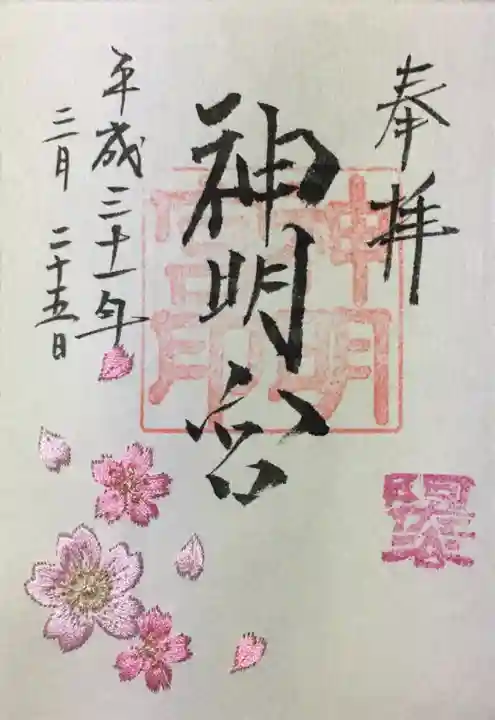 奉拝
神明宮
平成三十一年
三月二十五日
神明
宮印